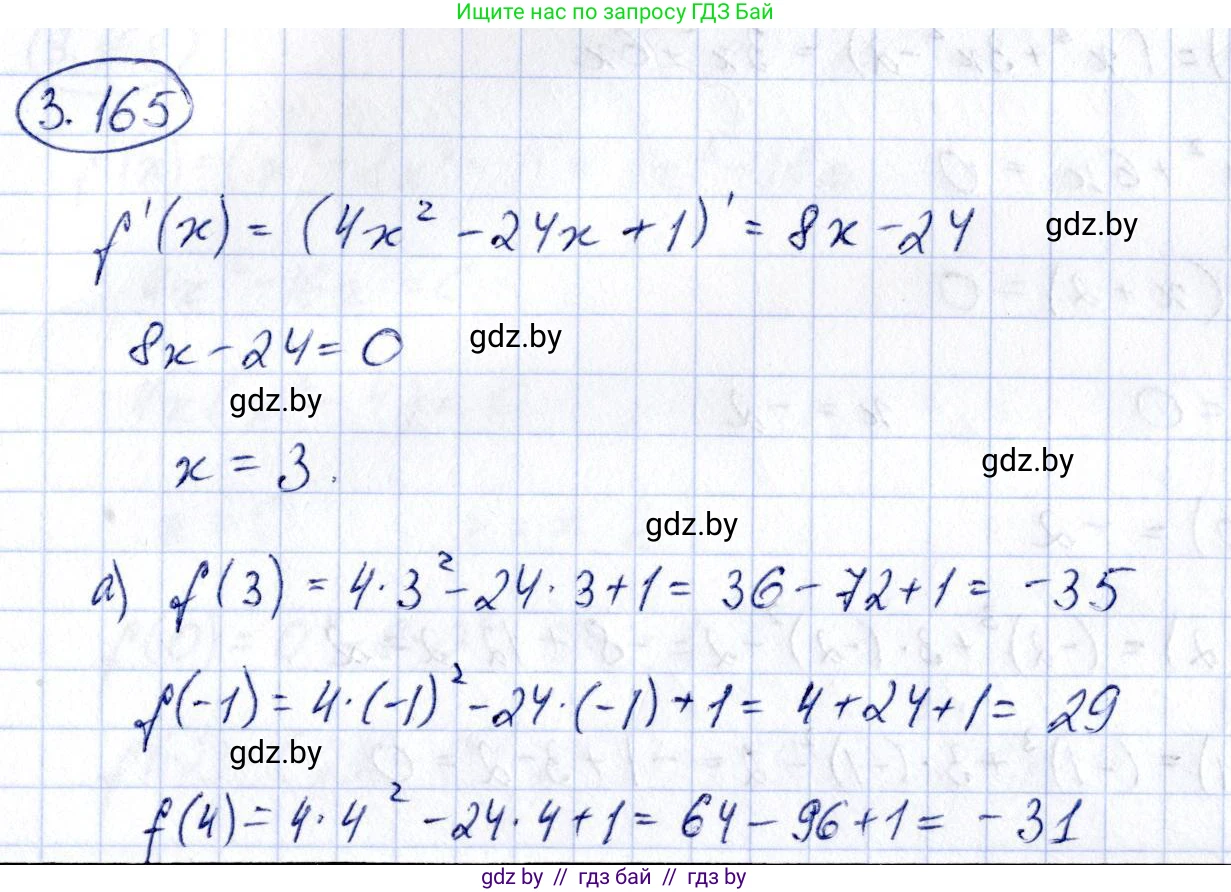 Ищите нас по запросу ГДЗ Бай
3.165
f'(x) = (4x² - 24x + 1)' = 8x - 24
gdz.by
8x - 24 = 0
gdz.by
gdz.by
x = 3.
gdz.by
gdz.by
а) f(3) = 4·3² - 24·3 + 1 = 36 - 72 + 1 = -35
f(-1) = 4·(-1)² - 24·(-1) + 1 = 4 + 24 + 1 = 29
gdz.by
f(4) = 4·4² - 24·4 + 1 = 64 - 96 + 1 = -31
gdz.by // гдз бай // gdz.by